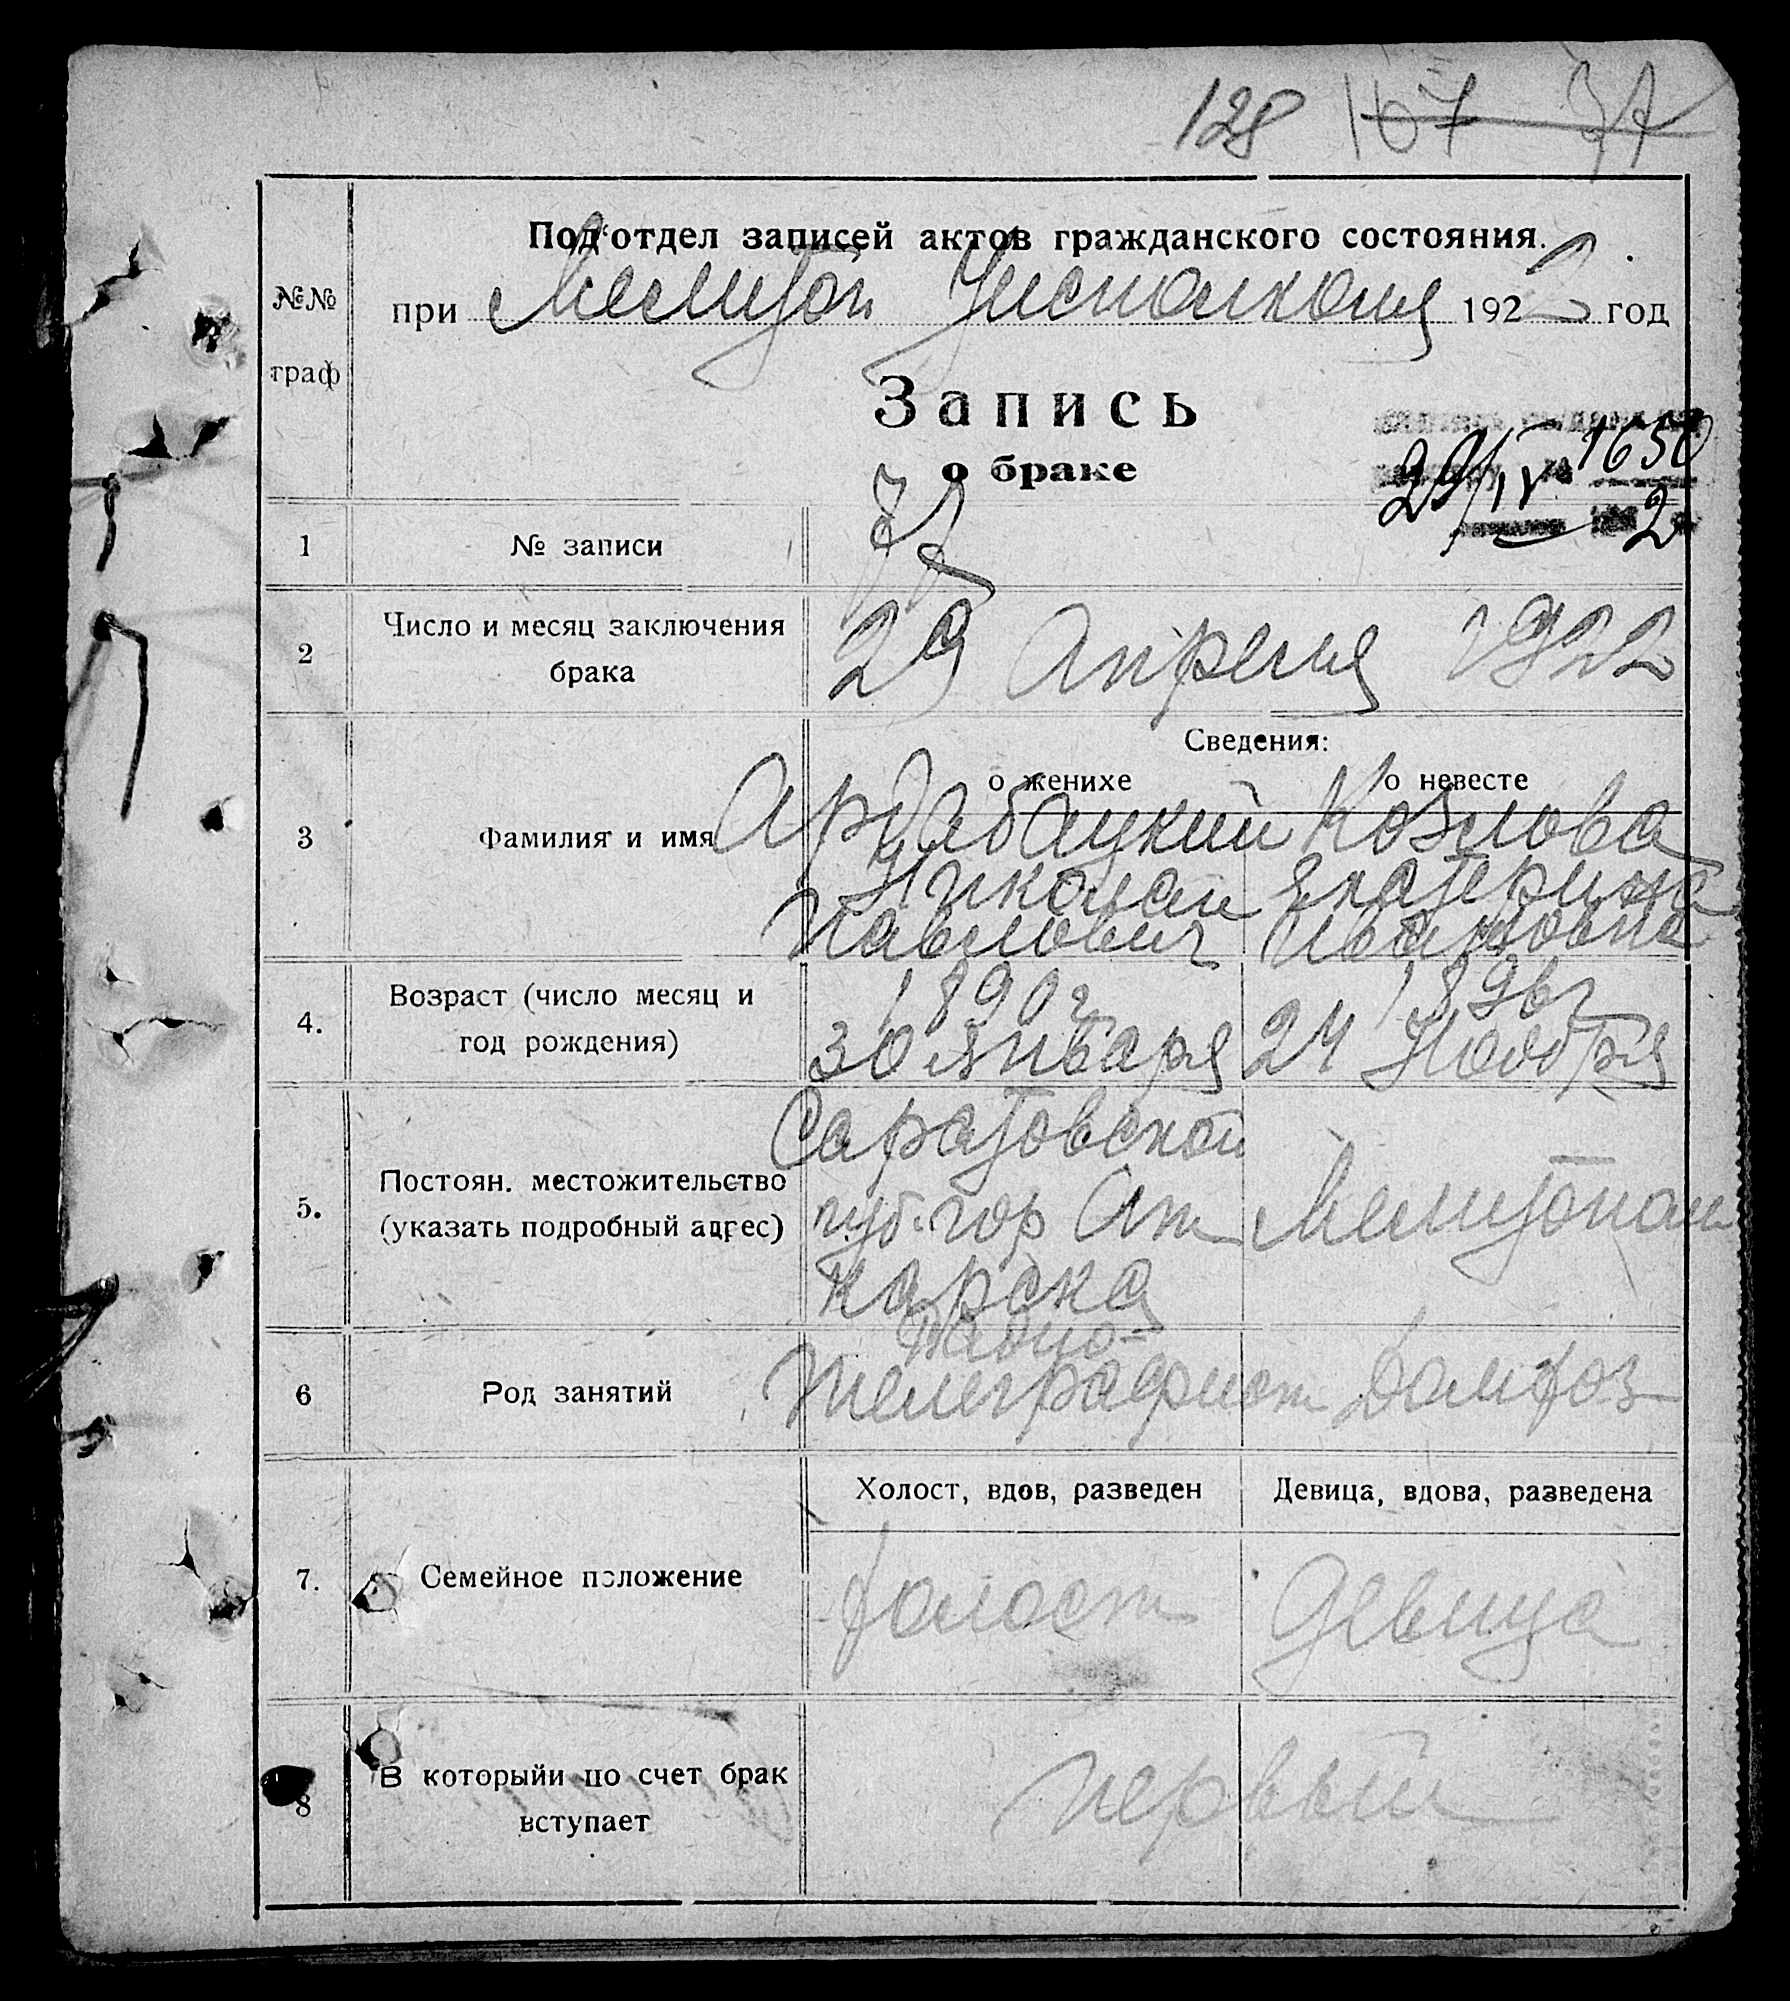 128 167 77
Под‘отдел записей актов гражданского состояния.
№№
граф
при Мелитоп Исполкоме 1922 год
Запись
о браке
29/IV 1650
2
1 № записи 77
2 Число и месяц заключения
брака
29 Апреля 1922
Сведения:
о женихе о невесте
3 Фамилия и имя
Ардабацкий Козлова
Николай Екатерина
Павлович Ивановна
4. Возраст (число месяц и
год рождения)
1890 г 1896 г
30 Января 24 Ноября
5. Постоян. местожительство
(указать подробный адрес)
Саратовской
губ. гор Ат Мелитопол
карска
6 Род занятий
Радио-
телеграфист Домхоз
Холост, вдов, разведен Девица, вдова, разведена
7. Семейное положение
холост Девица
8 В которыйи по счет брак
вступает
первый